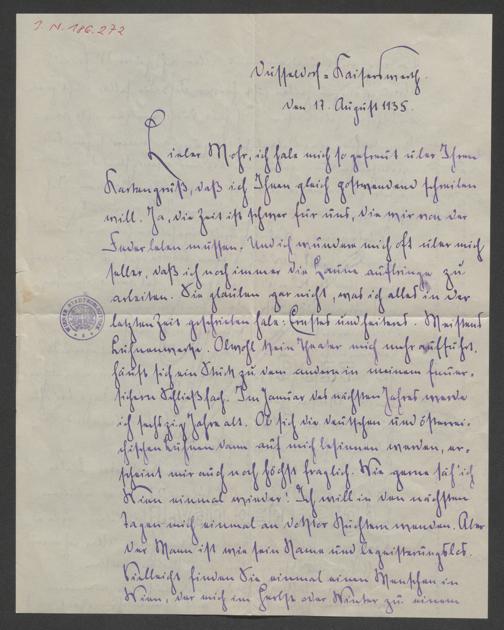 J. N. 186.272
Düsseldorf-Kaiserswerth.
den 17. August 1935.
Lieber Mohr, ich habe mich so gefreut über Ihren
Kartengruß, daß ich Ihnen gleich postwendend schreiben
will. Ja, die Zeit ist schwer für uns, die wir von der
Feder leben müssen. Und ich wundere mich oft über mich
selber, daß ich noch immer die Laune aufbringe zu
arbeiten. Sie glauben gar nicht, was ich alles in der
letzten Zeit geschrieben habe: Ernstes und heiteres. Meistens
Bühnenwerke. Obwohl kein Theater mich mehr aufführt,
häuft sich ein Stück zu dem andern in meinem feuer-
sichern Schließfach. Im Januar des nächsten Jahres werde
ich sechzig Jahre alt. Ob sich die deutschen und österrei-
chischen Bühnen dann auf mich besinnen werden, er-
scheint mir auch noch höchst fraglich. Wie gerne säh' ich
Wien einmal wieder! Ich will in den nächsten
Tagen mich einmal an Doktor Nüchtern wenden. Aber
der Mann ist wie sein Name und begeisterungslos.
Vielleicht finden Sie einmal einen Menschen in
Wien, der mich im Herbst oder Winter zu einem